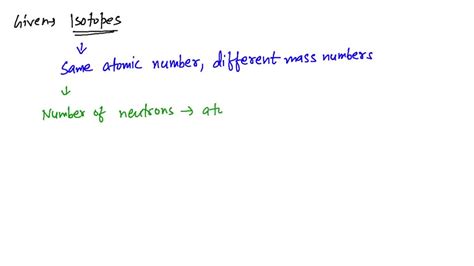 Given→ Isotopes
↓
Same atomic number, different mass numbers
↓
Number of neutrons → at